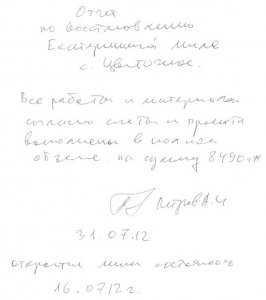 Отчет
по востановлению
Екатерининской мили
с. Цветочное.
Все работы и материалы
согласно сметы и проекта
выполнены в полном
объеме на сумму 8490
Петров А.Ч
31 07.12
открытие мили состоялось
16.07.12 г.